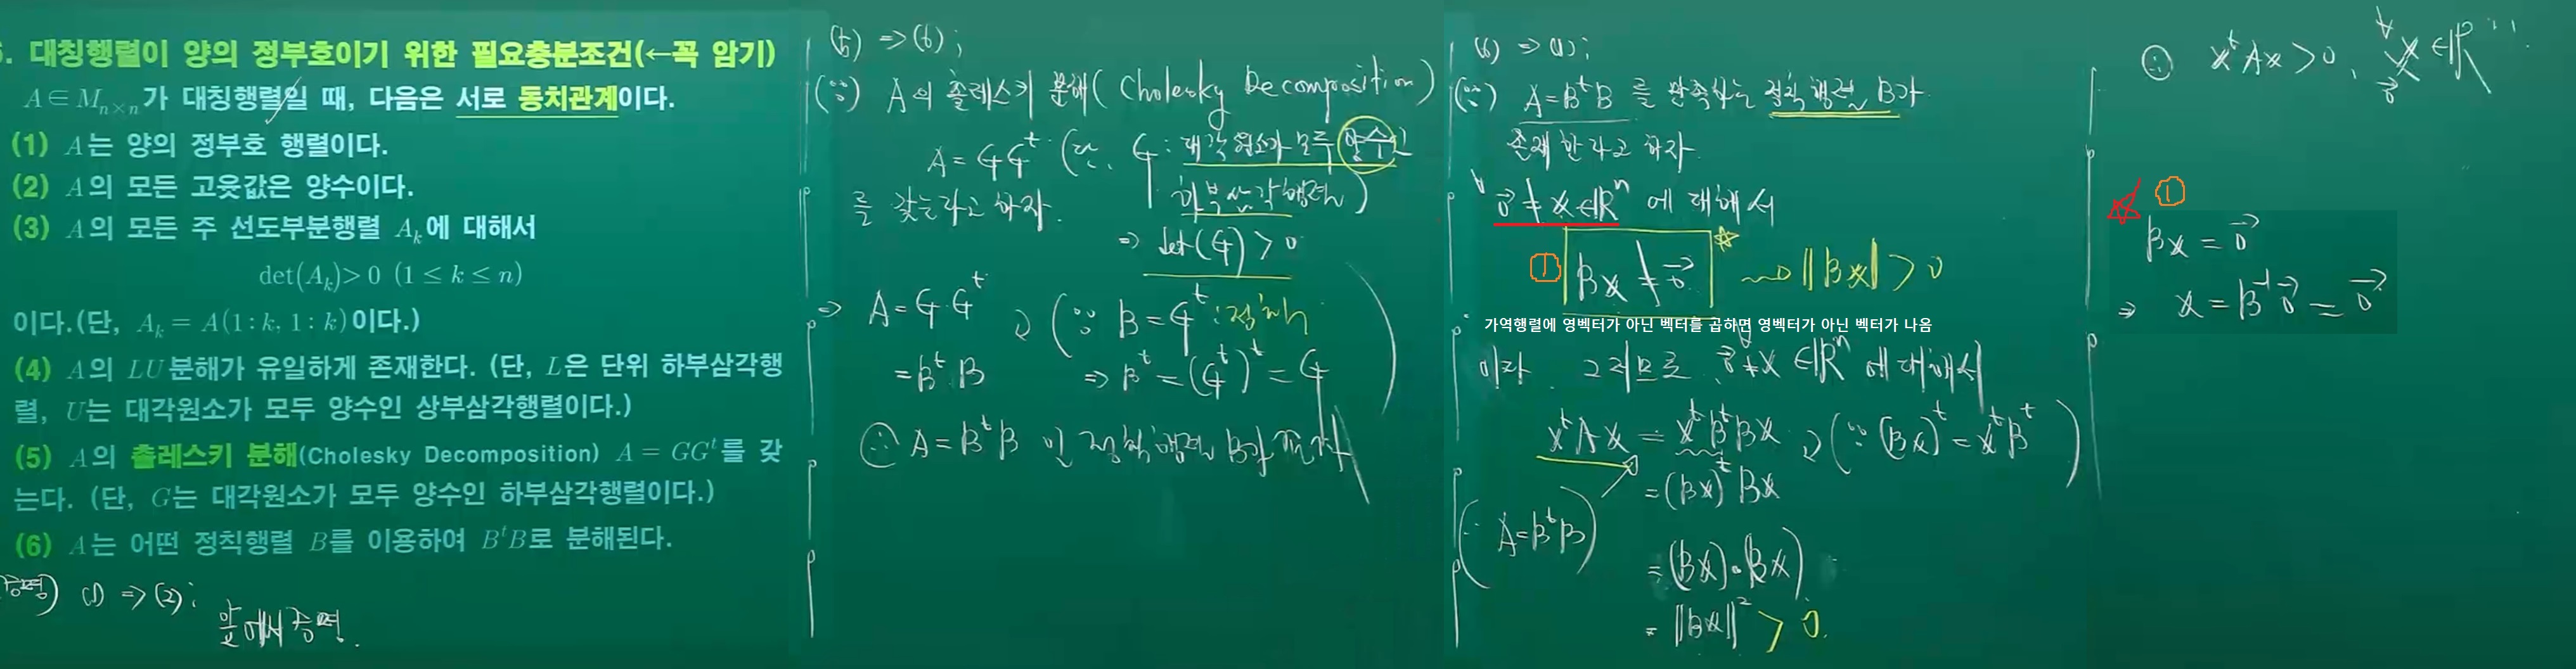 5. 대칭행렬이 양의 정부호이기 위한 필요충분조건(←꼭 암기)
A∈Mₙₓₙ가 대칭행렬일 때, 다음은 서로 동치관계이다.
(1) A는 양의 정부호 행렬이다.
(2) A의 모든 고윳값은 양수이다.
(3) A의 모든 주 선도부분행렬 Aₖ에 대해서
det(Aₖ)>0 (1≤k≤n)
이다.(단, Aₖ=A(1:k, 1:k)이다.)
(4) A의 LU분해가 유일하게 존재한다. (단, L은 단위 하부삼각행
렬, U는 대각원소가 모두 양수인 상부삼각행렬이다.)
(5) A의 촐레스키 분해(Cholesky Decomposition) A=GGᵗ를 갖
는다. (단, G는 대각원소가 모두 양수인 하부삼각행렬이다.)
(6) A는 어떤 정칙행렬 B를 이용하여 BᵗB로 분해된다.
증명) (1) ⇒ (2);
앞에서 증명.
(5) ⇒ (6);
(∵) A의 촐레스키 분해(Cholesky Decomposition)
A=GGᵗ (단, G: 대각원소가 모두 양수인
하부삼각행렬)
를 갖는다고 하자.
⇒ det(G) > 0
⇒ A=G·Gᵗ (∵ B=Gᵗ: 정칙
=BᵗB ⇒ Bᵗ=(Gᵗ)ᵗ=G)
∴ A=BᵗB 인 정칙행렬 B가 존재
(6) ⇒ (1);
(∵) A=BᵗB 를 만족하는 정칙행렬 B가
존재한다고 하자.
∀ 0⃗≠x∈ℝⁿ 에 대해서
① Bx≠0⃗ ⇝ ‖Bx‖>0
가역행렬에 영벡터가 아닌 벡터를 곱하면 영벡터가 아닌 벡터가 나옴
이다. 그러므로 ∀ 0⃗≠x∈ℝⁿ 에 대해서
xᵗAx = xᵗBᵗBx (∵ (Bx)ᵗ=xᵗBᵗ)
=(Bx)ᵗBx
(∵ A=BᵗB)
=(Bx)·(Bx)
=‖Bx‖² > 0.
∴ xᵗAx>0, ∀ 0⃗≠x∈ℝⁿ
①
Bx=0⃗
⇒ x=B⁻¹0⃗=0⃗